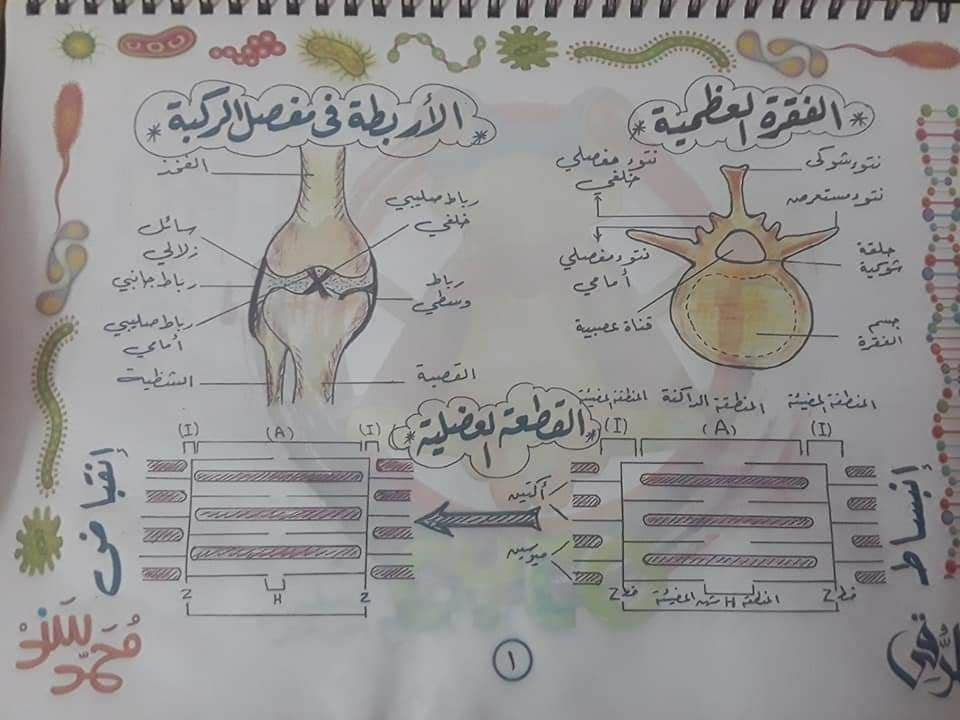 الفقرة العظمية
نتوء شوكى
نتوء مستعرض
حلقة
شوكية
جسم
الفقرة
نتوء مفصلي
خلفي
نتوء مفصلي
أمامي
قناة عصبية
الأربطة فى مفصل الركبة
رباط صليبي
خلفي
رباط
وسطي
القصبة
الفخذ
سائل
زلالي
رباط جانبي
رباط صليبي
أمامي
الشظية
القطعة العضلية
المنطقة المضيئة
المنطقة الداكنة
المنطقة المضيئة
(I)
(A)
(I)
إنبساط
أكتين
ميوسين
خط Z
المنطقة H شبه المضيئة
خط Z
(I)
(A)
(I)
إنقباض
Z
H
Z
محمد سند
١